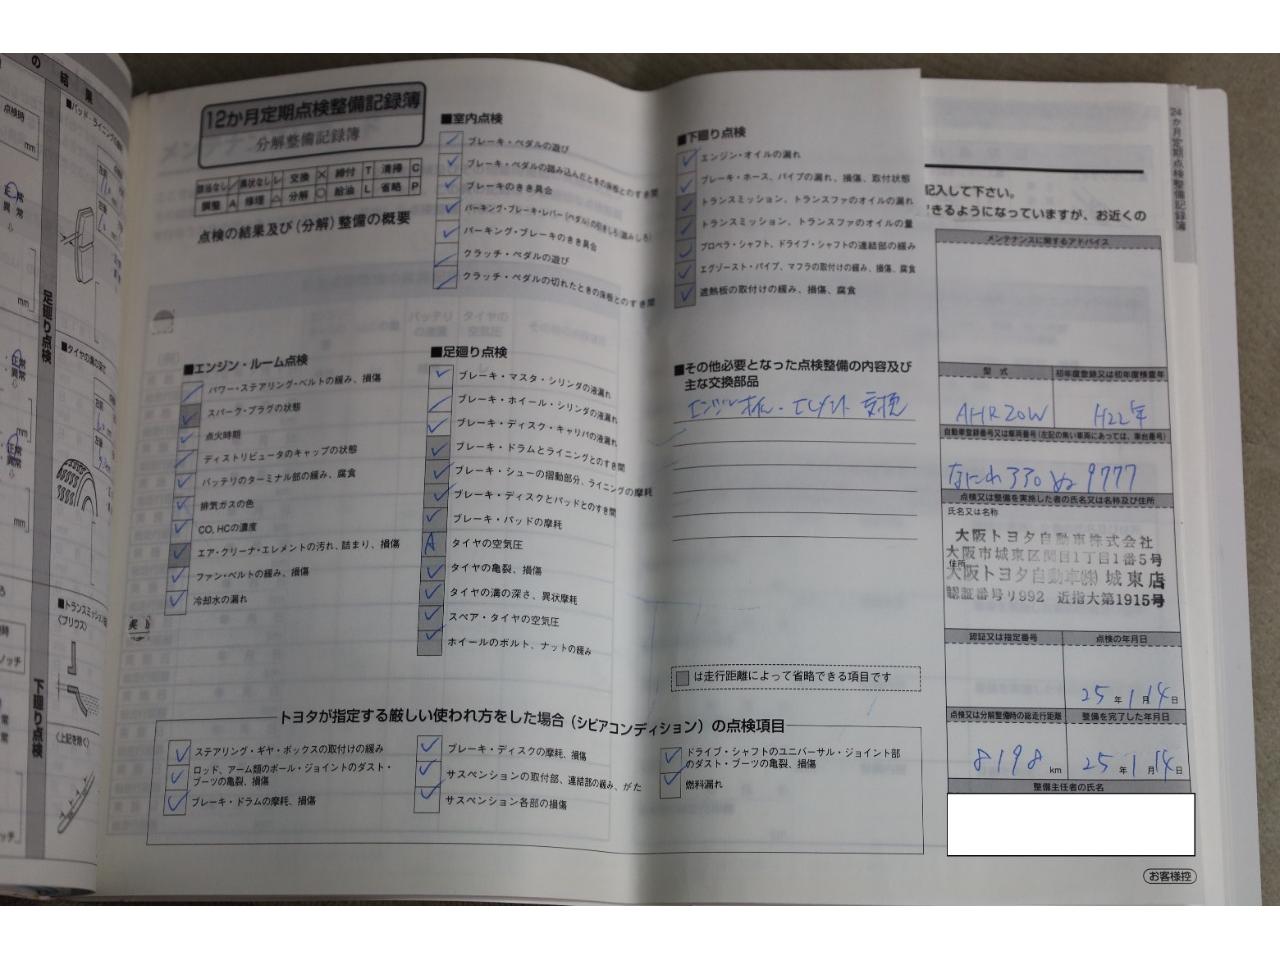 の結果
点検時
■パッド・ライニングの
mm
正常
異常
足廻り点検
■タイヤの溝の深さ
mm
正常
異常
mm
正常
異常
■トランスミッション
〈プリウス〉
〈上記を除く〉
下廻り点検
12か月定期点検整備記録簿
分解整備記録簿
該当なし ／ 異状なし レ 交換 × 締付 T 清掃 C
調整 A 修理 △ 分解 ○ 給油 L 省略 P
点検の結果及び（分解）整備の概要
■エンジン・ルーム点検
パワー・ステアリング・ベルトの緩み、損傷
スパーク・プラグの状態
点火時期
ディストリビュータのキャップの状態
バッテリのターミナル部の緩み、腐食
排気ガスの色
CO、HCの濃度
エア・クリーナ・エレメントの汚れ、詰まり、損傷
ファン・ベルトの緩み、損傷
冷却水の漏れ
■室内点検
ブレーキ・ペダルの遊び
ブレーキ・ペダルの踏み込んだときの床板とのすき間
ブレーキのきき具合
パーキング・ブレーキ・レバー（ペダル）の引きしろ（踏みしろ）
パーキング・ブレーキのきき具合
クラッチ・ペダルの遊び
クラッチ・ペダルの切れたときの床板とのすき間
■足廻り点検
ブレーキ・マスタ・シリンダの液漏れ
ブレーキ・ホイール・シリンダの液漏れ
ブレーキ・ディスク・キャリパの液漏れ
ブレーキ・ドラムとライニングとのすき間
ブレーキ・シューの摺動部分、ライニングの摩耗
ブレーキ・ディスクとパッドとのすき間
ブレーキ・パッドの摩耗
A タイヤの空気圧
タイヤの亀裂、損傷
タイヤの溝の深さ、異状摩耗
スペア・タイヤの空気圧
ホイールのボルト、ナットの緩み
■下廻り点検
エンジン・オイルの漏れ
ブレーキ・ホース、パイプの漏れ、損傷、取付状態
トランスミッション、トランスファのオイルの漏れ
トランスミッション、トランスファのオイルの量
プロペラ・シャフト、ドライブ・シャフトの連結部の緩み
エグゾースト・パイプ、マフラの取付けの緩み、損傷、腐食
遮熱板の取付けの緩み、損傷、腐食
■その他必要となった点検整備の内容及び
主な交換部品
エンジンオイル・エレメント 交換
は走行距離によって省略できる項目です
トヨタが指定する厳しい使われ方をした場合（シビアコンディション）の点検項目
ステアリング・ギヤ・ボックスの取付けの緩み
ロッド、アーム類のボール・ジョイントのダスト・
ブーツの亀裂、損傷
ブレーキ・ドラムの摩耗、損傷
ブレーキ・ディスクの摩耗、損傷
サスペンションの取付部、連結部の緩み、がた
サスペンション各部の損傷
ドライブ・シャフトのユニバーサル・ジョイント部
のダスト・ブーツの亀裂、損傷
燃料漏れ
24か月定期点検整備記録簿
記入して下さい。
できるようになっていますが、お近くの
メンテナンスに関するアドバイス
型式 初年度登録又は初年度検査年
AHR20W H22年
自動車登録番号又は車両番号（左記の無い車両にあっては、車台番号）
なにわ 330 ぬ 9777
点検又は整備を実施した者の氏名又は名称及び住所
氏名又は名称
大阪トヨタ自動車株式会社
大阪市城東区関目1丁目1番5号
住所
大阪トヨタ自動車㈱ 城東店
認証番号リ992 近指大第1915号
認証又は指定番号 点検の年月日
25 年 1 月 14 日
点検又は分解整備時の総走行距離 整備を完了した年月日
8198 km 25 年 1 月 14 日
整備主任者の氏名
お客様控